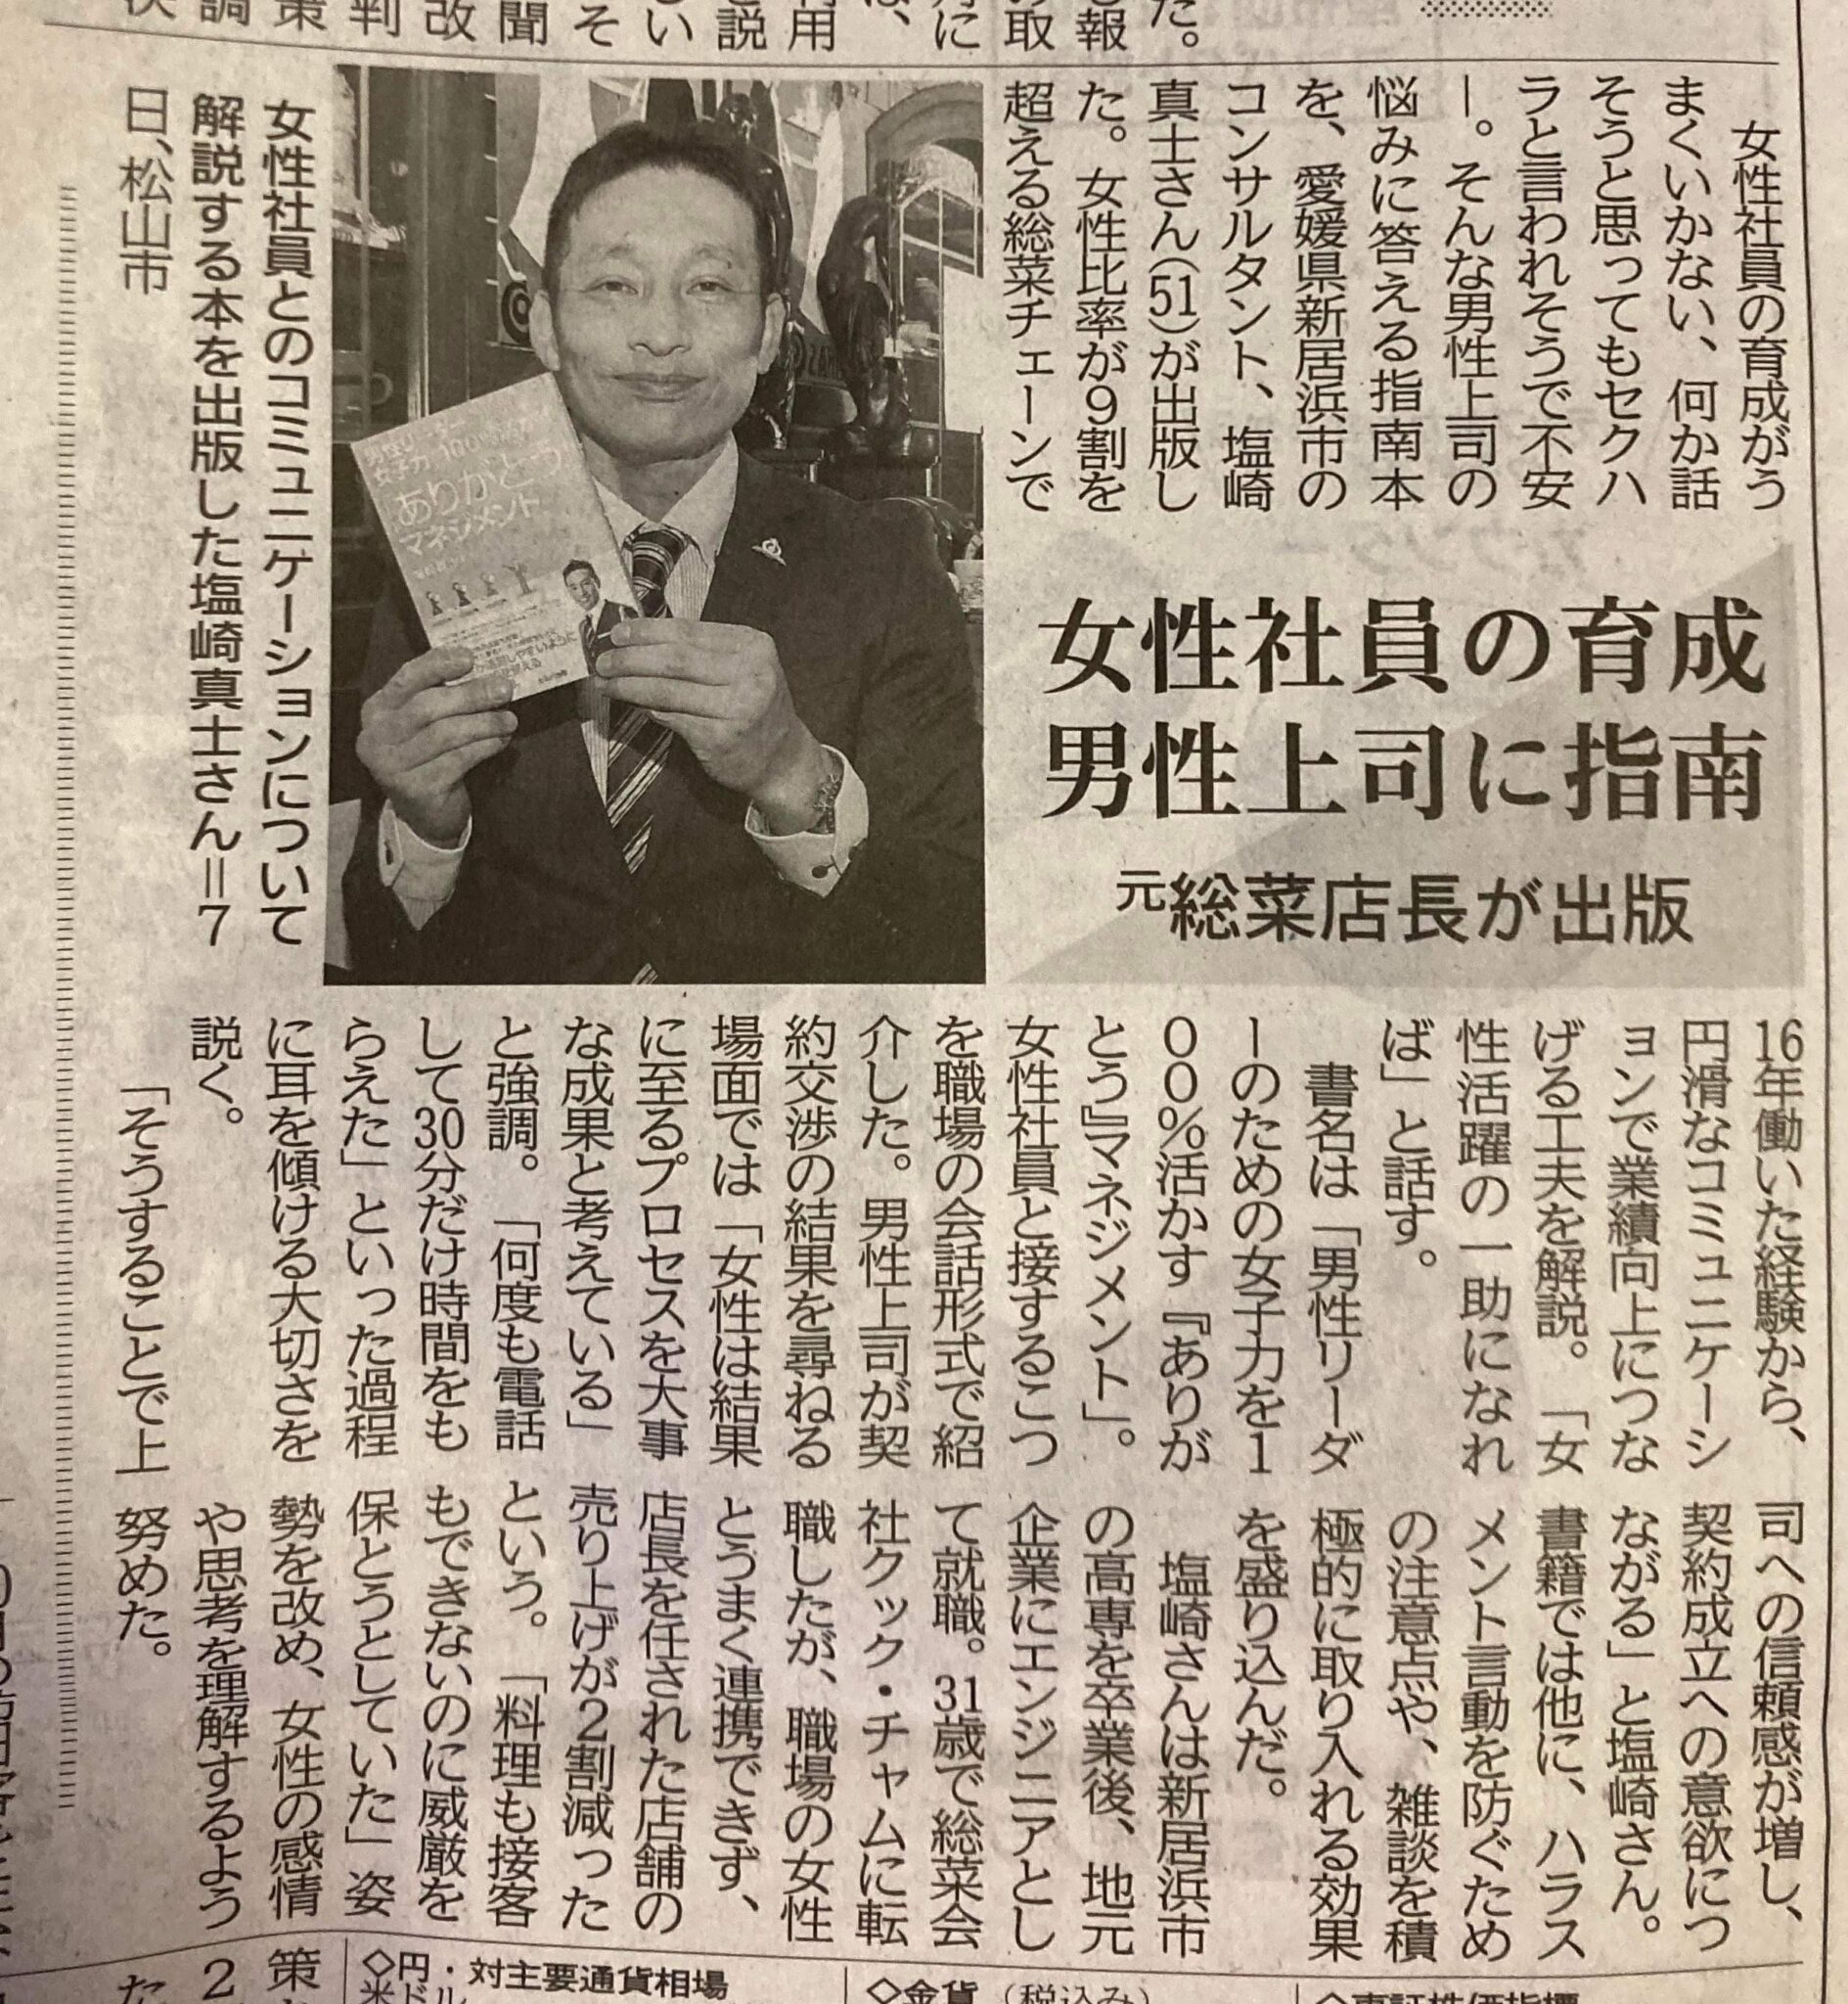 女性社員の育成
男性上司に指南
元総菜店長が出版
女性社員の育成がう
まくいかない、何か話
そうと思ってもセクハ
ラと言われそうで不安
―。そんな男性上司の
悩みに答える指南本
を、愛媛県新居浜市の
コンサルタント、塩崎
真士さん(51)が出版し
た。女性比率が9割を
超える総菜チェーンで
16年働いた経験から、
円滑なコミュニケーシ
ョンで業績向上につな
げる工夫を解説。「女
性活躍の一助になれ
ば」と話す。
書名は「男性リーダ
ーのための女子力を1
00%活かす『ありが
とう』マネジメント」。
女性社員と接するこつ
を職場の会話形式で紹
介した。男性上司が契
約交渉の結果を尋ねる
場面では「女性は結果
に至るプロセスを大事
な成果と考えている」
と強調。「何度も電話
して30分だけ時間をも
らえた」といった過程
に耳を傾ける大切さを
説く。
「そうすることで上
司への信頼感が増し、
契約成立への意欲につ
ながる」と塩崎さん。
書籍では他に、ハラス
メント言動を防ぐため
の注意点や、雑談を積
極的に取り入れる効果
を盛り込んだ。
塩崎さんは新居浜市
の高専を卒業後、地元
企業にエンジニアとし
て就職。31歳で総菜会
社クック・チャムに転
職したが、職場の女性
とうまく連携できず、
店長を任された店舗の
売り上げが2割減った
という。「料理も接客
もできないのに威厳を
保とうとしていた」姿
勢を改め、女性の感情
や思考を理解するよう
努めた。
女性社員とのコミュニケーションについて
解説する本を出版した塩崎真士さん=7
日、松山市
男性リーダー
女子力
100%活かす
ありがとう
マネジメント
た。
報
取
に
は、
用
説
い
そ
聞
改
判
策
調
策
2
た
◇円・
対主要通貨相場
米ドル
◇金貨(税込み)
◇東証株価指標